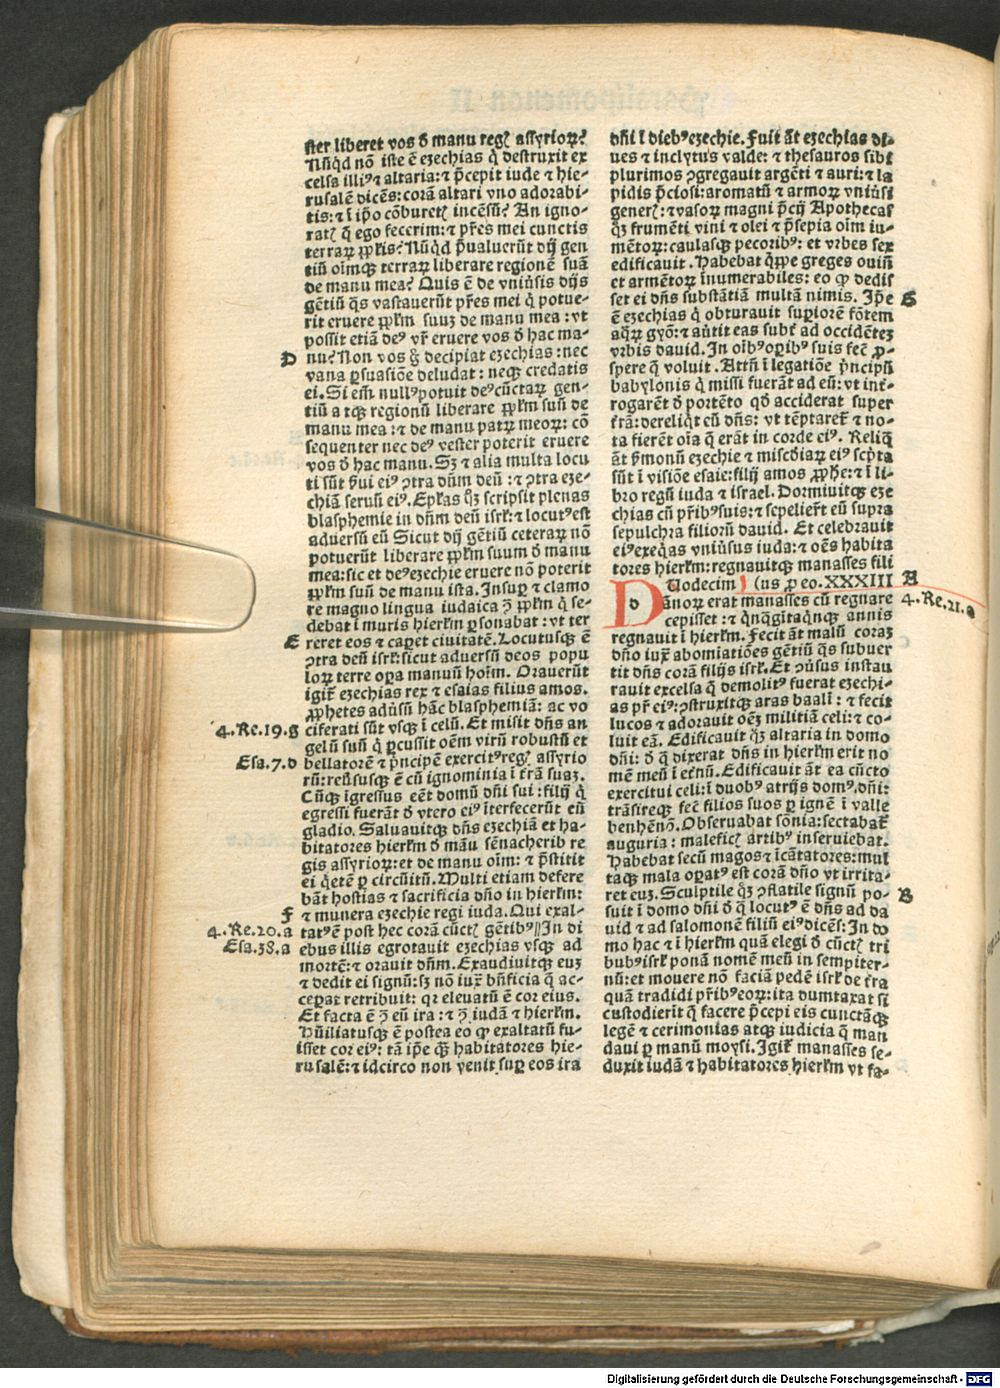 ster liberet vos ð manu regꝭ assyrioꝝ?
Nūqd nō iste ē ezechias q̇ destruxit ex
celsa illiꝰ ⁊ altaria: ⁊ p̄cepit iude ⁊ hie-
rusalē dicēs: corā altari vno adorabi-
tis: ⁊ ī ip̄o cōburetꝭ incēsū? An igno-
ratꝭ q̄ ego fecerim: ⁊ p̄res mei cunctis
terraꝝ pp̄lis? Nūqd p̄ualuerūt dij gen
tiū oīmqꝫ terraꝝ liberare regionē suā
de manu mea? Quis ē de vniūsis dijs
gētiū qͣs vastauerūt p̄res mei q̇ potue-
rit eruere pp̄lm suuꝫ de manu mea: vt
possit etiā deꝰ vr̄ eruere vos ð hac ma-
D nu? Non vos gͦ decipiat ezechias: nec
vana ꝑsuasiōe deludat: neqꝫ credatis
ei. Si em̄ nullꝰ potuit deꝰ cūctaꝝ gen-
tiū atqꝫ regionū liberare pp̄lm suū de
manu mea: ⁊ de manu patꝝ meoꝝ: cō
sequenter nec deꝰ vester poterit eruere
vos ð hac manu. Sꝫ ⁊ alia multa locu
ti sūt s̄ui eiꝰ ↄtra dūm deū: ⁊ ↄtra eze-
chiā seruū eiꝰ. Ep̄las qͦꝫ scripsit plenas
blasphemie in dn̄m deū isrł: ⁊ locutꝰ est
aduersū eū Sicut dij gētiū ceteraꝝ nō
potuerūt liberare pp̄lm suum ð manu
mea: sic et deꝰ ezechie eruere nō poterit
pp̄lm suū de manu ista. Insuꝑ ⁊ clamo
re magno lingua iudaica ↄ̄ pp̄lm q̇ se-
debat ī muris hierl̄m ꝑsonabat: vt ter
E reret eos ⁊ caꝑet ciuitatē. Locutusqꝫ ē
ↄtra deū isrł: sicut aduersū deos popu
loꝝ terre oꝑa manuū hoīm. Orauerūt
igit̄ ezechias rex ⁊ esaias filius amos.
ꝓphetes adūsū hāc blasphemiā: ac vo
4. Re. 19. g ciferati sūt vsqꝫ ī celū. Et misit dn̄s an
gelū suū q̇ ꝑcussit oēm virū robustū et
Esa. 7. d bellatorē ⁊ p̄ncipē exercitꝰ regꝭ assyrio
rū: reūsusqꝫ ē cū ignominia ī t̄rā suaꝫ.
Cūqꝫ īgressus eēt domū dn̄i sui: filij q̇
egressi fuerāt ð vtero eiꝰ īterfecerūt eū
gladio. Saluauitqꝫ dn̄s ezechiā et ha-
bitatores hierl̄m ð māu sēnacherib re
gis assyrioꝝ: et de manu oīm: ⁊ p̄stitit
ei q̇etē ꝑ circūitū. Multi etiam defere
bāt hostias ⁊ sacrificia dn̄o in hierl̄m:
F ⁊ munera ezechie regi iuda. Qui exal-
4. Re. 20. a tatꝰ ē post hec corā cūctꝭ gētibꝰ // In di
Esa. 38. a ebus illis egrotauit ezechias vsqꝫ ad
mortē: ⁊ orauit dn̄m. Exaudiuitqꝫ euꝫ
⁊ dedit ei signū: sꝫ nō iux̄ bn̄ficia q̄ ac-
ceꝑat retribuit: qꝛ eleuatū ē cor eius.
Et facta ē ↄ̄ eū ira: ⁊ ↄ̄ iudā ⁊ hierl̄m.
Hūiliatusqꝫ ē postea eo ꝙ exaltatū fu-
isset cor eiꝰ: tā ip̄e qͣꝫ habitatores hie-
rusalē: ⁊ idcirco non venit suꝑ eos ira
dn̄i ī diebꝰ ezechie. Fuit āt ezechias di-
ues ⁊ inclytus valde: ⁊ thesauros sibi
plurimos ↄgregauit argēti ⁊ auri: ⁊ la
pidis p̄ciosi: aromatū ⁊ armoꝝ vniūsi
generꝭ: ⁊ vasoꝝ magni p̄cij Apothecas
qͦꝫ frumēti vini ⁊ olei ⁊ p̄sepia oīm iu-
mētoꝝ: caulasqꝫ pecoribꝰ: et vrbes sex
edificauit. Habebat q̇ppe greges ouiū
et armētoꝝ īnumerabiles: eo ꝙ dedis
set ei dn̄s substātiā multā nimis. Ip̄e G
ē ezechias q̇ obturauit suꝑiorē fōtem
aq̄ꝝ gyō: ⁊ aūtit eas subt̄ ad occidēteꝫ
vrbis dauid. In oībꝰ oꝑibꝰ suis fec̄ ꝓ-
spere q̄ voluit. Attn̄ ī legatiōe ṗncipū
babylonis q̇ missi fuerāt ad eū: vt int̄-
rogarēt ð portēto qð acciderat super
t̄rā: dereliqt̄ eū dn̄s: vt tēptaret̄ ⁊ no-
ta fierēt oīa q̄ erāt in corde eiꝰ. Reliq̄
āt s̄monū ezechie ⁊ miscd̄iaꝝ eiꝰ scpͥta
sūt ī visiōe esaie: filij amos ꝓph̄e: ⁊ ī li-
bro regū iuda ⁊ israel. Dormiuitqꝫ eze
chias cū pr̄ibꝰ suis: ⁊ sepeliert̄ eū supra
sepulchra filiorū dauid. Et celebrauit
eiꝰ exeq̇as vniūsus iuda: ⁊ oēs habita
tores hierl̄m: regnauitqꝫ manasses fili
Uodecim (us ꝓ eo. XXXIII A
D d ānoꝝ erat manasses cū regnare 4. Re. 21. a
cepisset: ⁊ qͥnqͣgītaqͥnqꝫ annis
regnauit ī hierl̄m. Fecit āt malū coraꝫ
dn̄o iux̄ abomiatiōes gētiū qͣs subuer
tit dn̄s corā filijs isrł. Et ↄūsus instau
rauit excelsa q̄ demolitꝰ fuerat ezechi-
as pr̄ eiꝰ: ↄstruxitqꝫ aras baalī: ⁊ fecit
lucos ⁊ adorauit oēꝫ militiā celi: ⁊ co-
luit eā. Edificauit qͦꝫ altaria in domo
dn̄i: ð q̄ dixerat dn̄s in hierl̄m erit no
mē meū ī et̄nū. Edificauit āt ea cūcto
exercitui celi: ī duobꝰ atrijs domꝰ dn̄i:
trāsireqꝫ fec̄ filios suos ꝑ ignē ī valle
benhēnō. Obseruabat sōnia: sectabat̄
auguria: maleficꝭ artibꝰ inseruiebat.
Habebat secū magos ⁊ īcātatores: mul
taqꝫ mala oꝑatꝰ est corā dn̄o vt irrita-
ret euꝫ. Sculptile qͦꝫ ↄflatile signū po- B
suit ī domo dn̄i ð q̄ locutꝰ ē dn̄s ad da
uid ⁊ ad salomonē filiū eiꝰ dicēs: In do
mo hac ⁊ ī hierl̄m quā elegi ð cūctꝭ tri
bubꝰ isrł ponā nomē meū in sempiter-
nū: et mouere nō faciā pedē isrł de t̄ra
quā tradidi pr̄ibꝰ eoꝝ: ita dumtaxat si
custodierit q̄ facere p̄cepi eis cunctāqꝫ
legē ⁊ cerimonias atqꝫ iudicia q̄ man
daui ꝑ manū moysi. Igit̄ manasses se-
duxit iudā ⁊ habitatores hierl̄m vt fa-
Digitalisierung gefördert durch die Deutsche Forschungsgemeinschaft - DFG